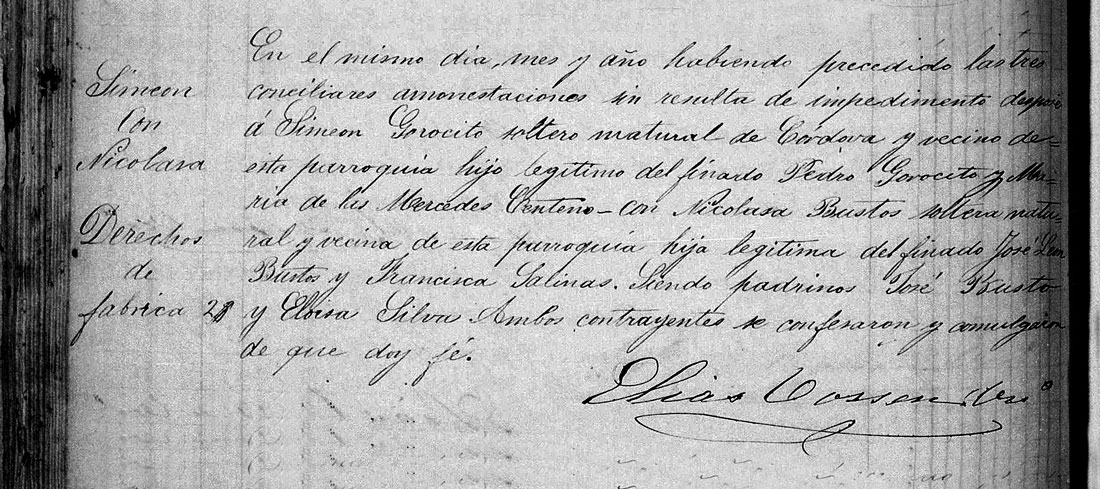 Simeon
Con
Nicolasa
Derechos
de
fabrica 2$
En el mismo dia, mes y año habiendo precedido las tres
conciliares amonestaciones sin resulta de impedimento despose
á Simeon Gorocito soltero natural de Córdova y vecino de=
esta parroquia hijo legitimo del finado Pedro Gorocito y Ma=
ria de las Mercedes Centeno - con Nicolasa Bustos soltera natu-
ral y vecina de esta parroquia hija legitima del finado José Leon
Bustos y Francisca Salinas. Siendo padrinos José Busto
y Eloisa Silva Ambos contrayentes se confesaron y comulgaron
de que doy fé.
Elias